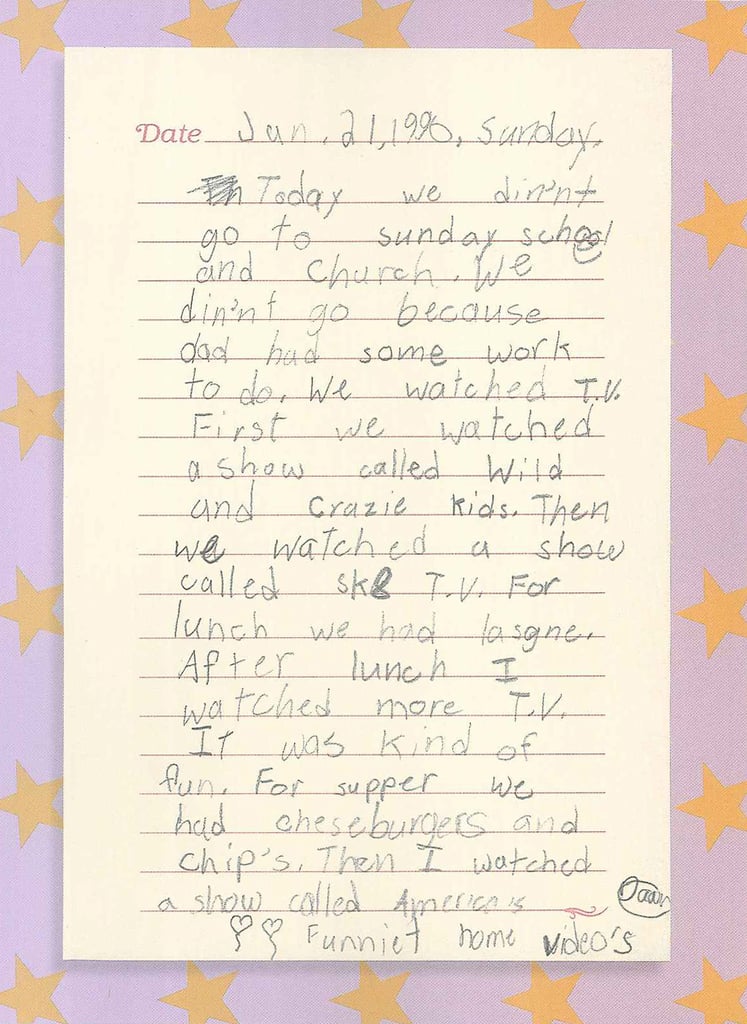 Date Jan. 21, 1996, Sunday.
Today we din'nt
go to sunday school
and Church. We
din'nt go because
dad had some work
to do. We watched T.V.
First we watched
a show called Wild
and Crazie kids. Then
we watched a show
called sk8 T.V. For
lunch we had lasgne.
After lunch I
watched more T.V.
It was kind of
fun. For supper we
had cheseburgers and
chip's. Then I watched
a show called America's
Funniet home video's